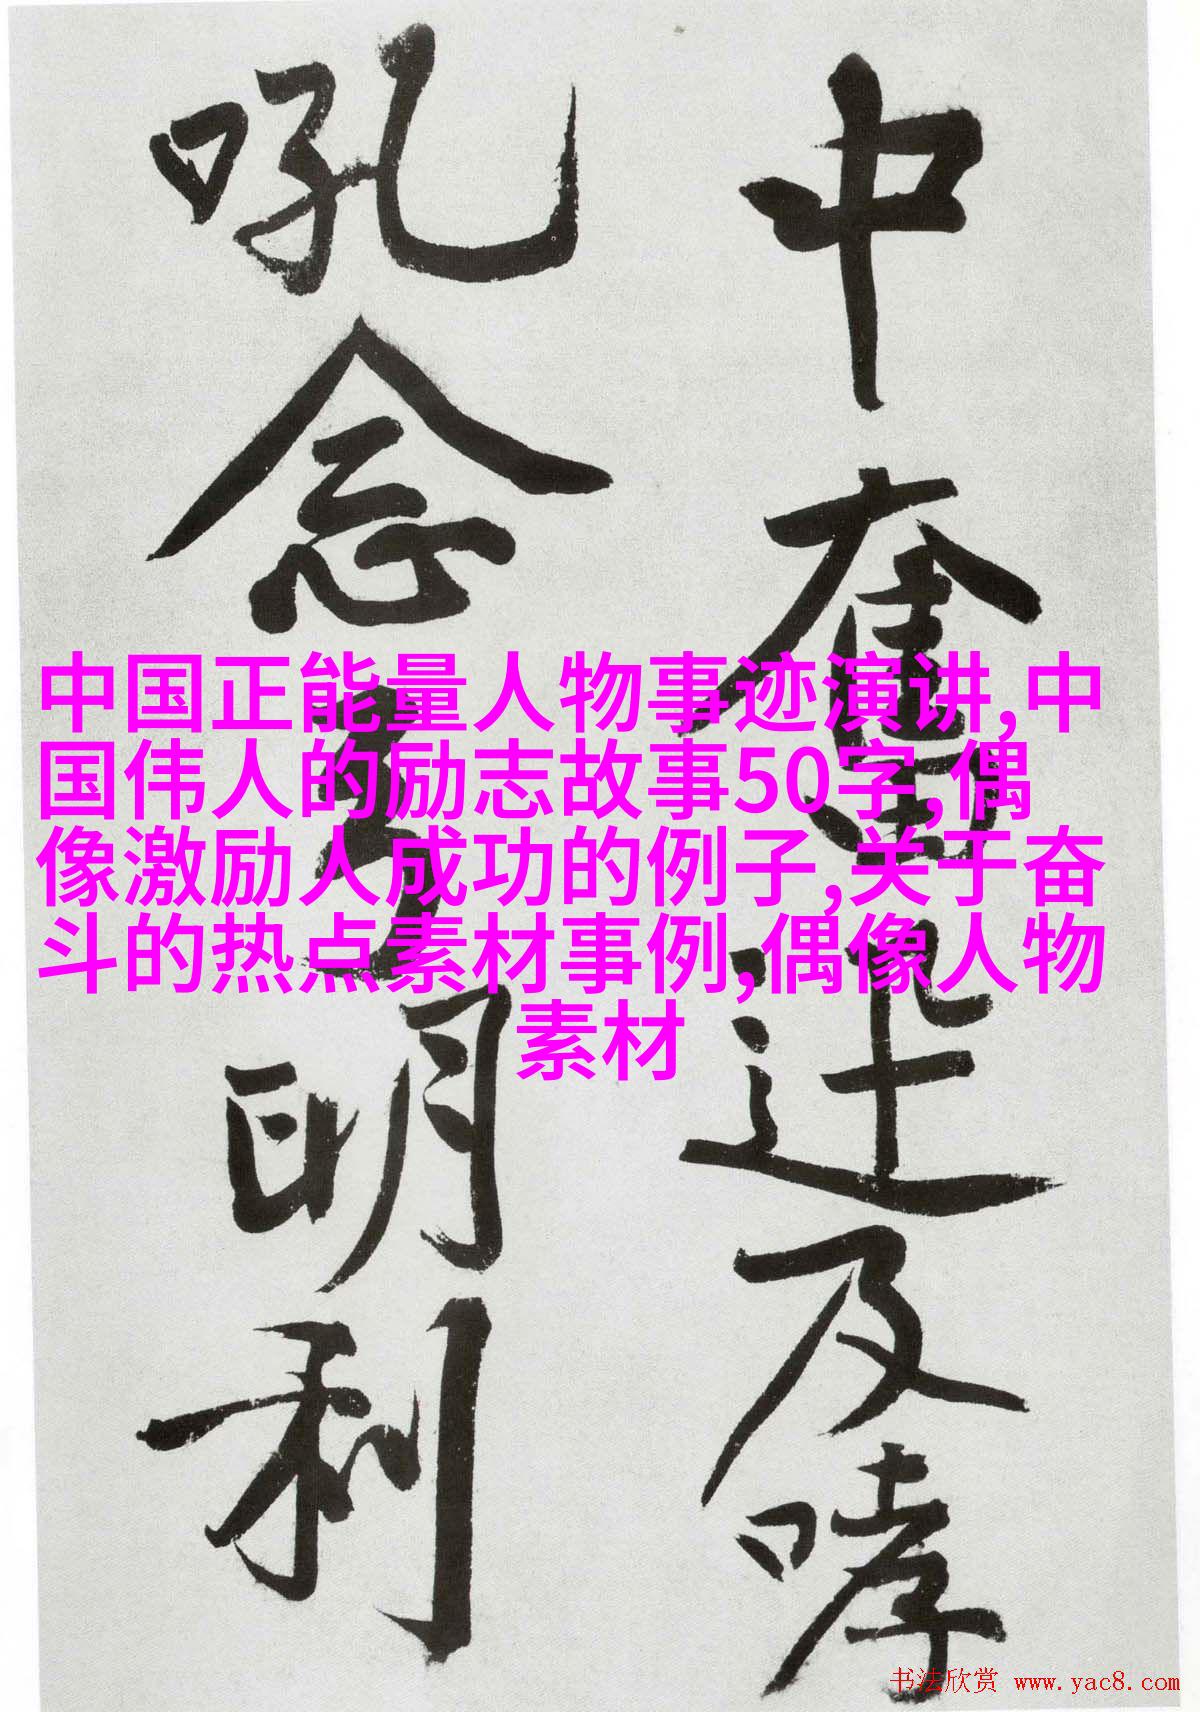 中奮迅及哮
吼念明利
中国正能量人物事迹演讲,中
国伟人的励志故事50字,偶
像激励人成功的例子,关于奋
斗的热点素材事例,偶像人物
素材
书法欣赏 www.yac8.com